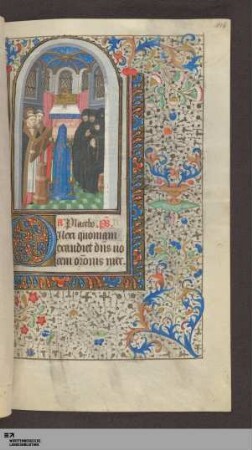 Placebo. ps.
Dilexi quoniam
exaudiet dns uo
cem orōnis mee.
WÜRTTEMBERGISCHE
LANDESBIBLIOTHEK